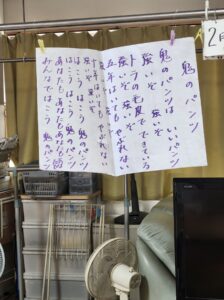 鬼のパンツ
鬼のパンツは いいパンツ
強いぞ 強いぞ
トラの毛皮で できている
強いぞ 強いぞ
五年はいても やぶれない
強いぞ 強いぞ
十年はいても やぶれない
強いぞ 強いぞ
はこう はこう 鬼のパンツ
はこう はこう 鬼のパンツ
あなたも あなたも あなたも
みんなではこう 鬼のパンツ